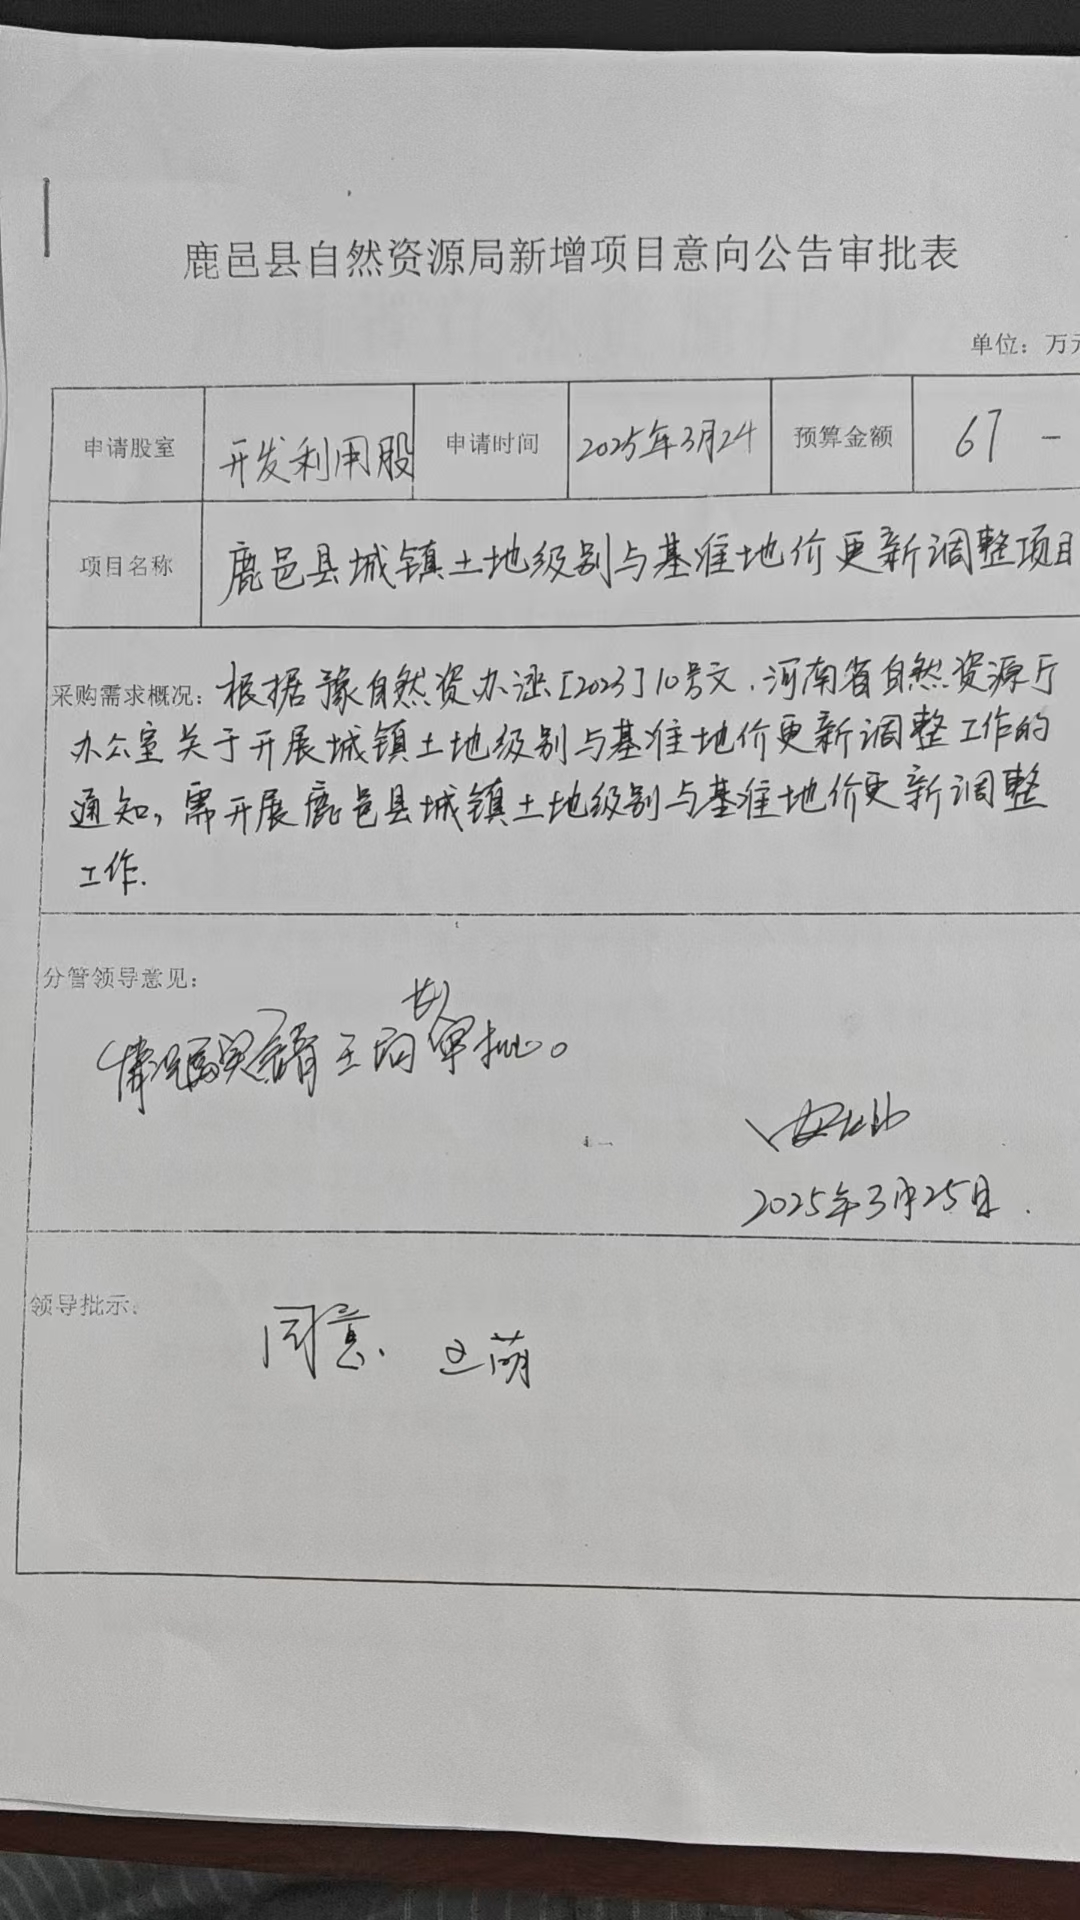 鹿邑县自然资源局新增项目意向公告审批表
单位：万元
申请股室 开发利用股 申请时间 2025年3月24 预算金额 67
项目名称 鹿邑县城镇土地级别与基准地价更新调整项目
采购需求概况：根据豫自然资办函[2023]10号文，河南省自然资源厅
办公室关于开展城镇土地级别与基准地价更新调整工作的
通知，需开展鹿邑县城镇土地级别与基准地价更新调整
工作.
分管领导意见：
情况属实 请王 审批。
2025年3月25日.
领导批示：
同意. 王萌